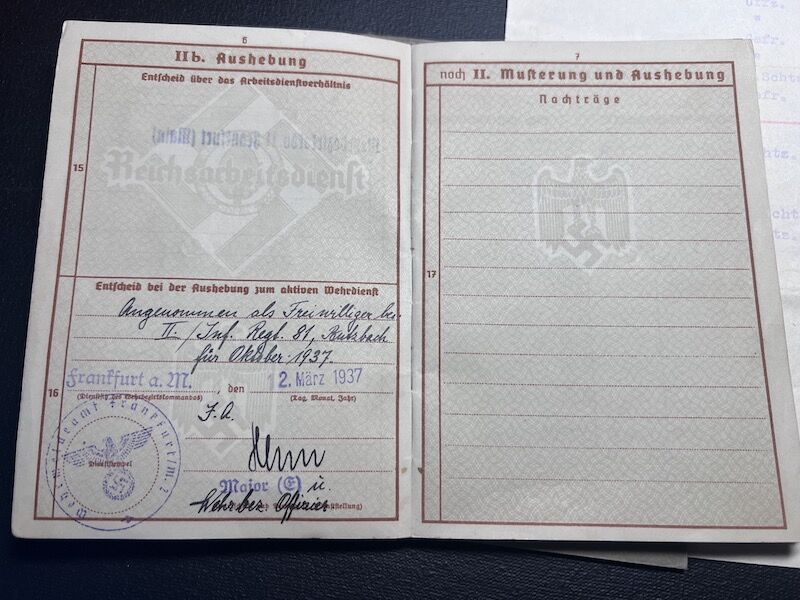 6
IIb. Aushebung
Entscheid über das Arbeitsdienstverhältnis
Frankfurt (Main)
Reichsarbeitsdienst
15
Entscheid bei der Aushebung zum aktiven Wehrdienst
Angenommen als Freiwilliger bei
II./Inf. Regt. 81, Butzbach
für Oktober 1937.
Frankfurt a. M. , den 12. März 1937
16
(Dienstsitz des Wehrbezirkskommandos)
(Tag, Monat, Jahr)
J.A.
Wehrmeldeamt Frankfurt/M.
Dienststempel
Major (E) u.
Wehrbez. Offizier
7
noch II. Musterung und Aushebung
Nachträge
17
Uffz.
"
Gefr.
"